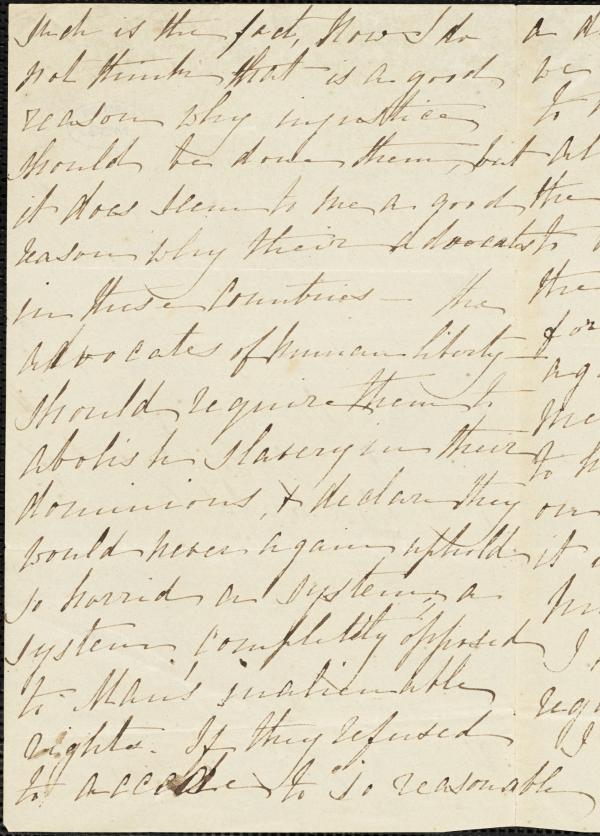 such is the fact, Now I do
not think that is a good
reason why injustice
should be done them, but
it does seem to me a good
reason why their advocates
in these countries — the
advocates of human liberty
should require them to
abolish slavery in their
dominions, & declare they
would never again uphold
so horrid a system, a
system completely opposed
to Man's inalienable
rights. If they refused
to accede to so reasonable
a
we
to
the
to
the
for
me
to
our
it
I
I